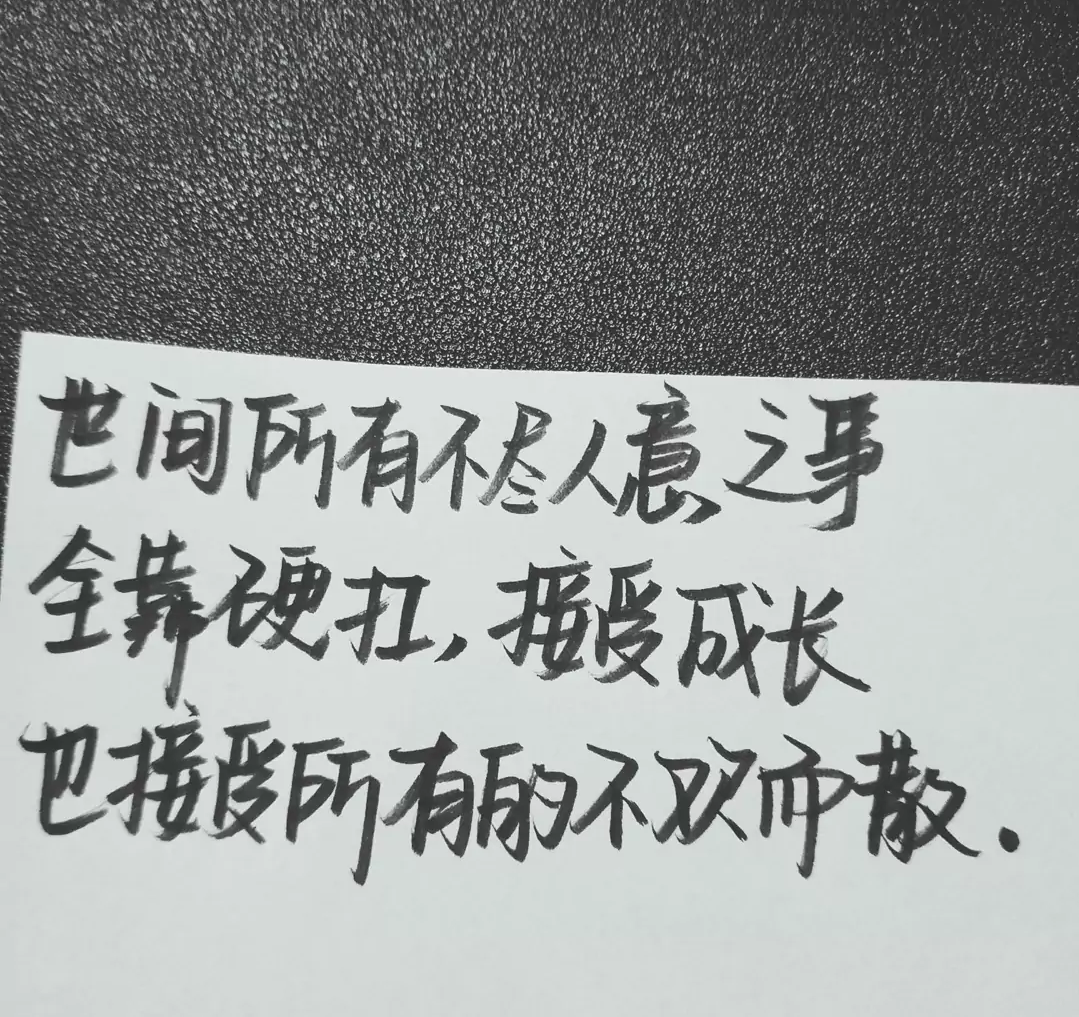 世间所有不尽人意之事
全靠硬扛,接受成长
也接受所有的不欢而散.